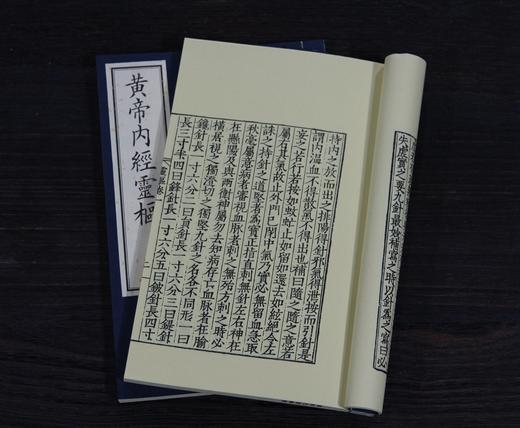 黃帝內經靈樞
失虛實之要九針最妙補寫之時以針爲之寫曰必
持內之放而出之排陽得針邪氣得泄按而引針是
謂內溫血不得散氣不得出也補曰隨之隨之意若
妄之若行若按如蚊虻止如留如還去如絃絕令左
屬右其氣故止外門已閉中氣乃實必無留血急取
誅之持針之道堅者爲寶正指直刺無針左右神在
秋毫屬意病者審視血脉者刺之無殆方刺之時必
在懸陽及與兩衛神屬勿去知病存亡血脉者在腧
橫居視之獨澄切之獨堅九針之名各不同形一曰
鑱針長一寸六分二曰員針長一寸六分三曰鍉針
長三寸半四曰鋒針長一寸六分五曰鈹針長四寸
靈樞卷一
二